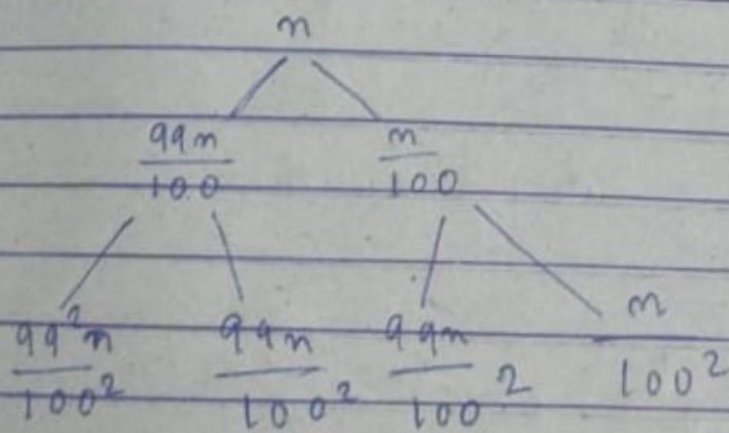 n
99n/100 n/100
99²n/100² 99n/100² 99n/100² n/100²